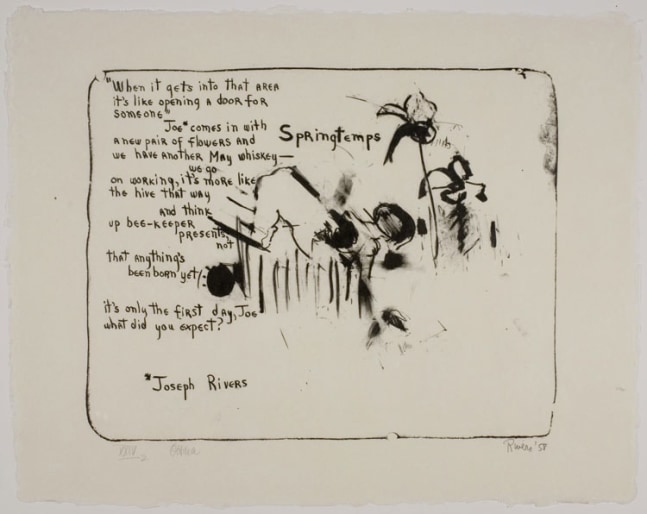 "When it gets into that area
it's like opening a door for
someone"
Joe* comes in with
a new pair of flowers and
we have another May whiskey—
we go
on working, it's more like
the hive that way
and think
up bee-keeper
presents,
not
that anything's
been born yet/
it's only the first day, Joe
what did you expect?
*Joseph Rivers
Springtemps
Rivers '58